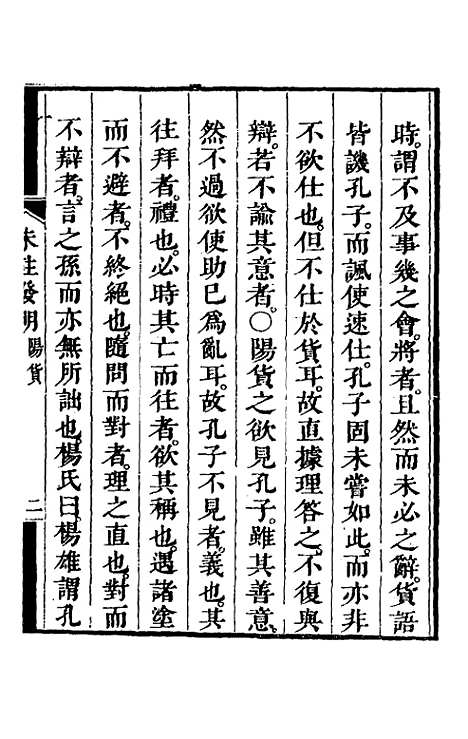 時。謂不及事幾之會。將者。且然而未必之辭。貨語
皆譏孔子。而諷使速仕。孔子固未嘗如此。而亦非
不欲仕也。但不仕於貨耳。故直據理答之。不復與
辯。若不諭其意者。○陽貨之欲見孔子。雖其善意。
然不過欲使助己爲亂耳。故孔子不見者。義也。其
往拜者。禮也。必時其亡而往者。欲其稱也。遇諸塗
而不避者。不終絕也。隨問而對者。理之直也。對而
不辯者。言之孫而亦無所詘也。楊氏曰。楊雄謂孔
朱註發明 陽貨 二